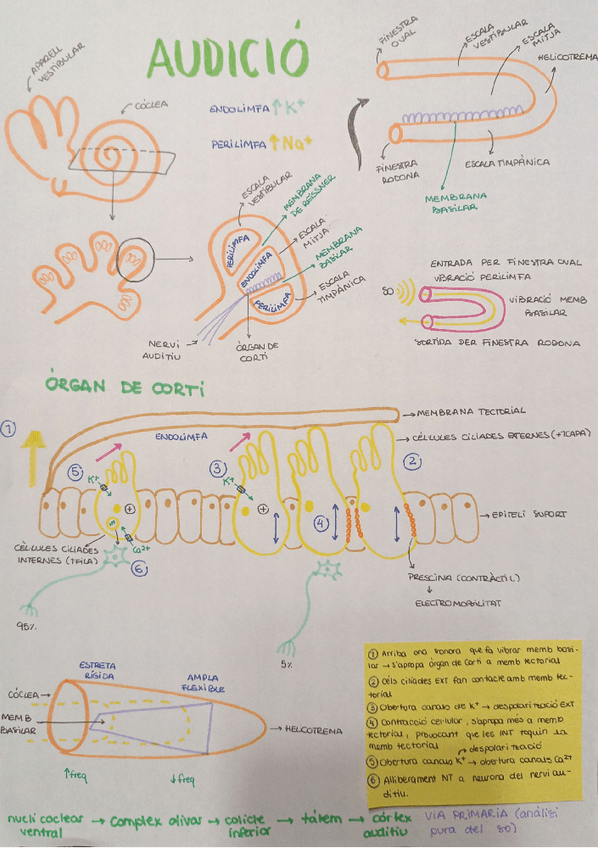 AUDICIÓ
APARELL
VESTIBULAR
CÒCLEA
ENDOLIMFA ↑K+
PERILIMFA ↑Na+
FINESTRA
OVAL
ESCALA
VESTIBULAR
ESCALA
MITJA
HELICOTREMA
FINESTRA
RODONA
ESCALA TIMPÀNICA
MEMBRANA
BASILAR
ESCALA
VESTIBULAR
MEMBRANA
DE REISSNER
ESCALA
MITJA
MEMBRANA
BASILAR
ESCALA
TIMPÀNICA
PERILIMFA
ENDOLIMFA
PERILIMFA
NERVI
AUDITIU
ÒRGAN DE
CORTI
ENTRADA PER FINESTRA OVAL
VIBRACIÓ PERILIMFA
SO
VIBRACIÓ MEMB
BASILAR
SORTIDA PER FINESTRA RODONA
ÒRGAN DE CORTI
MEMBRANA TECTORIAL
1
ENDOLIMFA
CÈL·LULES CILIADES EXTERNES (+1CAPA)
5
3
2
K+
K+
+
+
4
EPITELI SUPORT
Ca2+
CÈL·LULES CILIADES
INTERNES (1FILA)
6
PRESCINA (CONTRÀCTIL)
ELECTROMOBILITAT
95%
5%
ESTRETA
RÍGIDA
AMPLA
FLEXIBLE
CÒCLEA
MEMB
BASILAR
HELICOTREMA
↑freq
↓freq
① Arriba ona sonora que fa vibrar memb basi-
lar → s'apropa òrgan de Corti a memb tectorial
② Cèls ciliades EXT fan contacte amb memb tec-
torial
③ Obertura canals de K+ → despolarització EXT
④ Contracció cel·lular, s'apropa més a memb
tectorial, provocant que les INT toquin la
memb tectorial
despolarització
⑤ Obertura canals K+ → obertura canals Ca2+
⑥ Alliberament NT a neurona del nervi au-
ditiu.
nucli coclear → complex olivar → col·licle → tàlem → còrtex VIA PRIMARIA (anàlisi
ventral inferior auditiu pura del so)